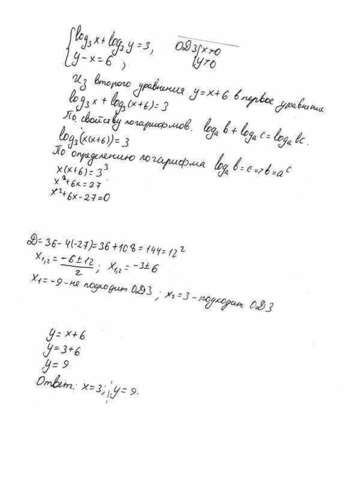 {log₃x + log₃y = 3, ОДЗ {x>0
{y - x = 6 , {y>0
Из второго уравнения y = x+6 в первое уравнение
log₃x + log₃(x+6) = 3
По свойству логарифмов. logₐb + logₐc = logₐbc.
log₃(x(x+6)) = 3
По определению логарифма logₐb = c => b = aᶜ
x(x+6) = 3³
x²+6x = 27
x²+6x-27=0
D = 36-4(-27)=36+108=144=12²
x₁,₂ = (-6±12)/2 ; x₁,₂ = -3±6
x₁ = -9 - не подходит ОДЗ ; x₂ = 3 - подходит ОДЗ
y = x+6
y = 3+6
y = 9
Ответ: x = 3; y = 9.